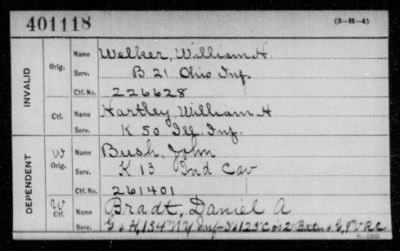 401118
(3-H-4)
INVALID
Orig.
Name Welker, William H.
Serv. B 21 Ohio Inf.
Ctf. No. 226628
Ctf.
Name Hartley, William H
Serv. K 50 Ill. Inf.
DEPENDENT
W
Orig.
Name Bush, John
Serv. K 13 Ind Cav
Ctf. No. 261401
W
Ctf.
Name Bradt, Daniel A
Serv. G & H, 134 NY Inf 125 Co 2 Batn & G, V R C